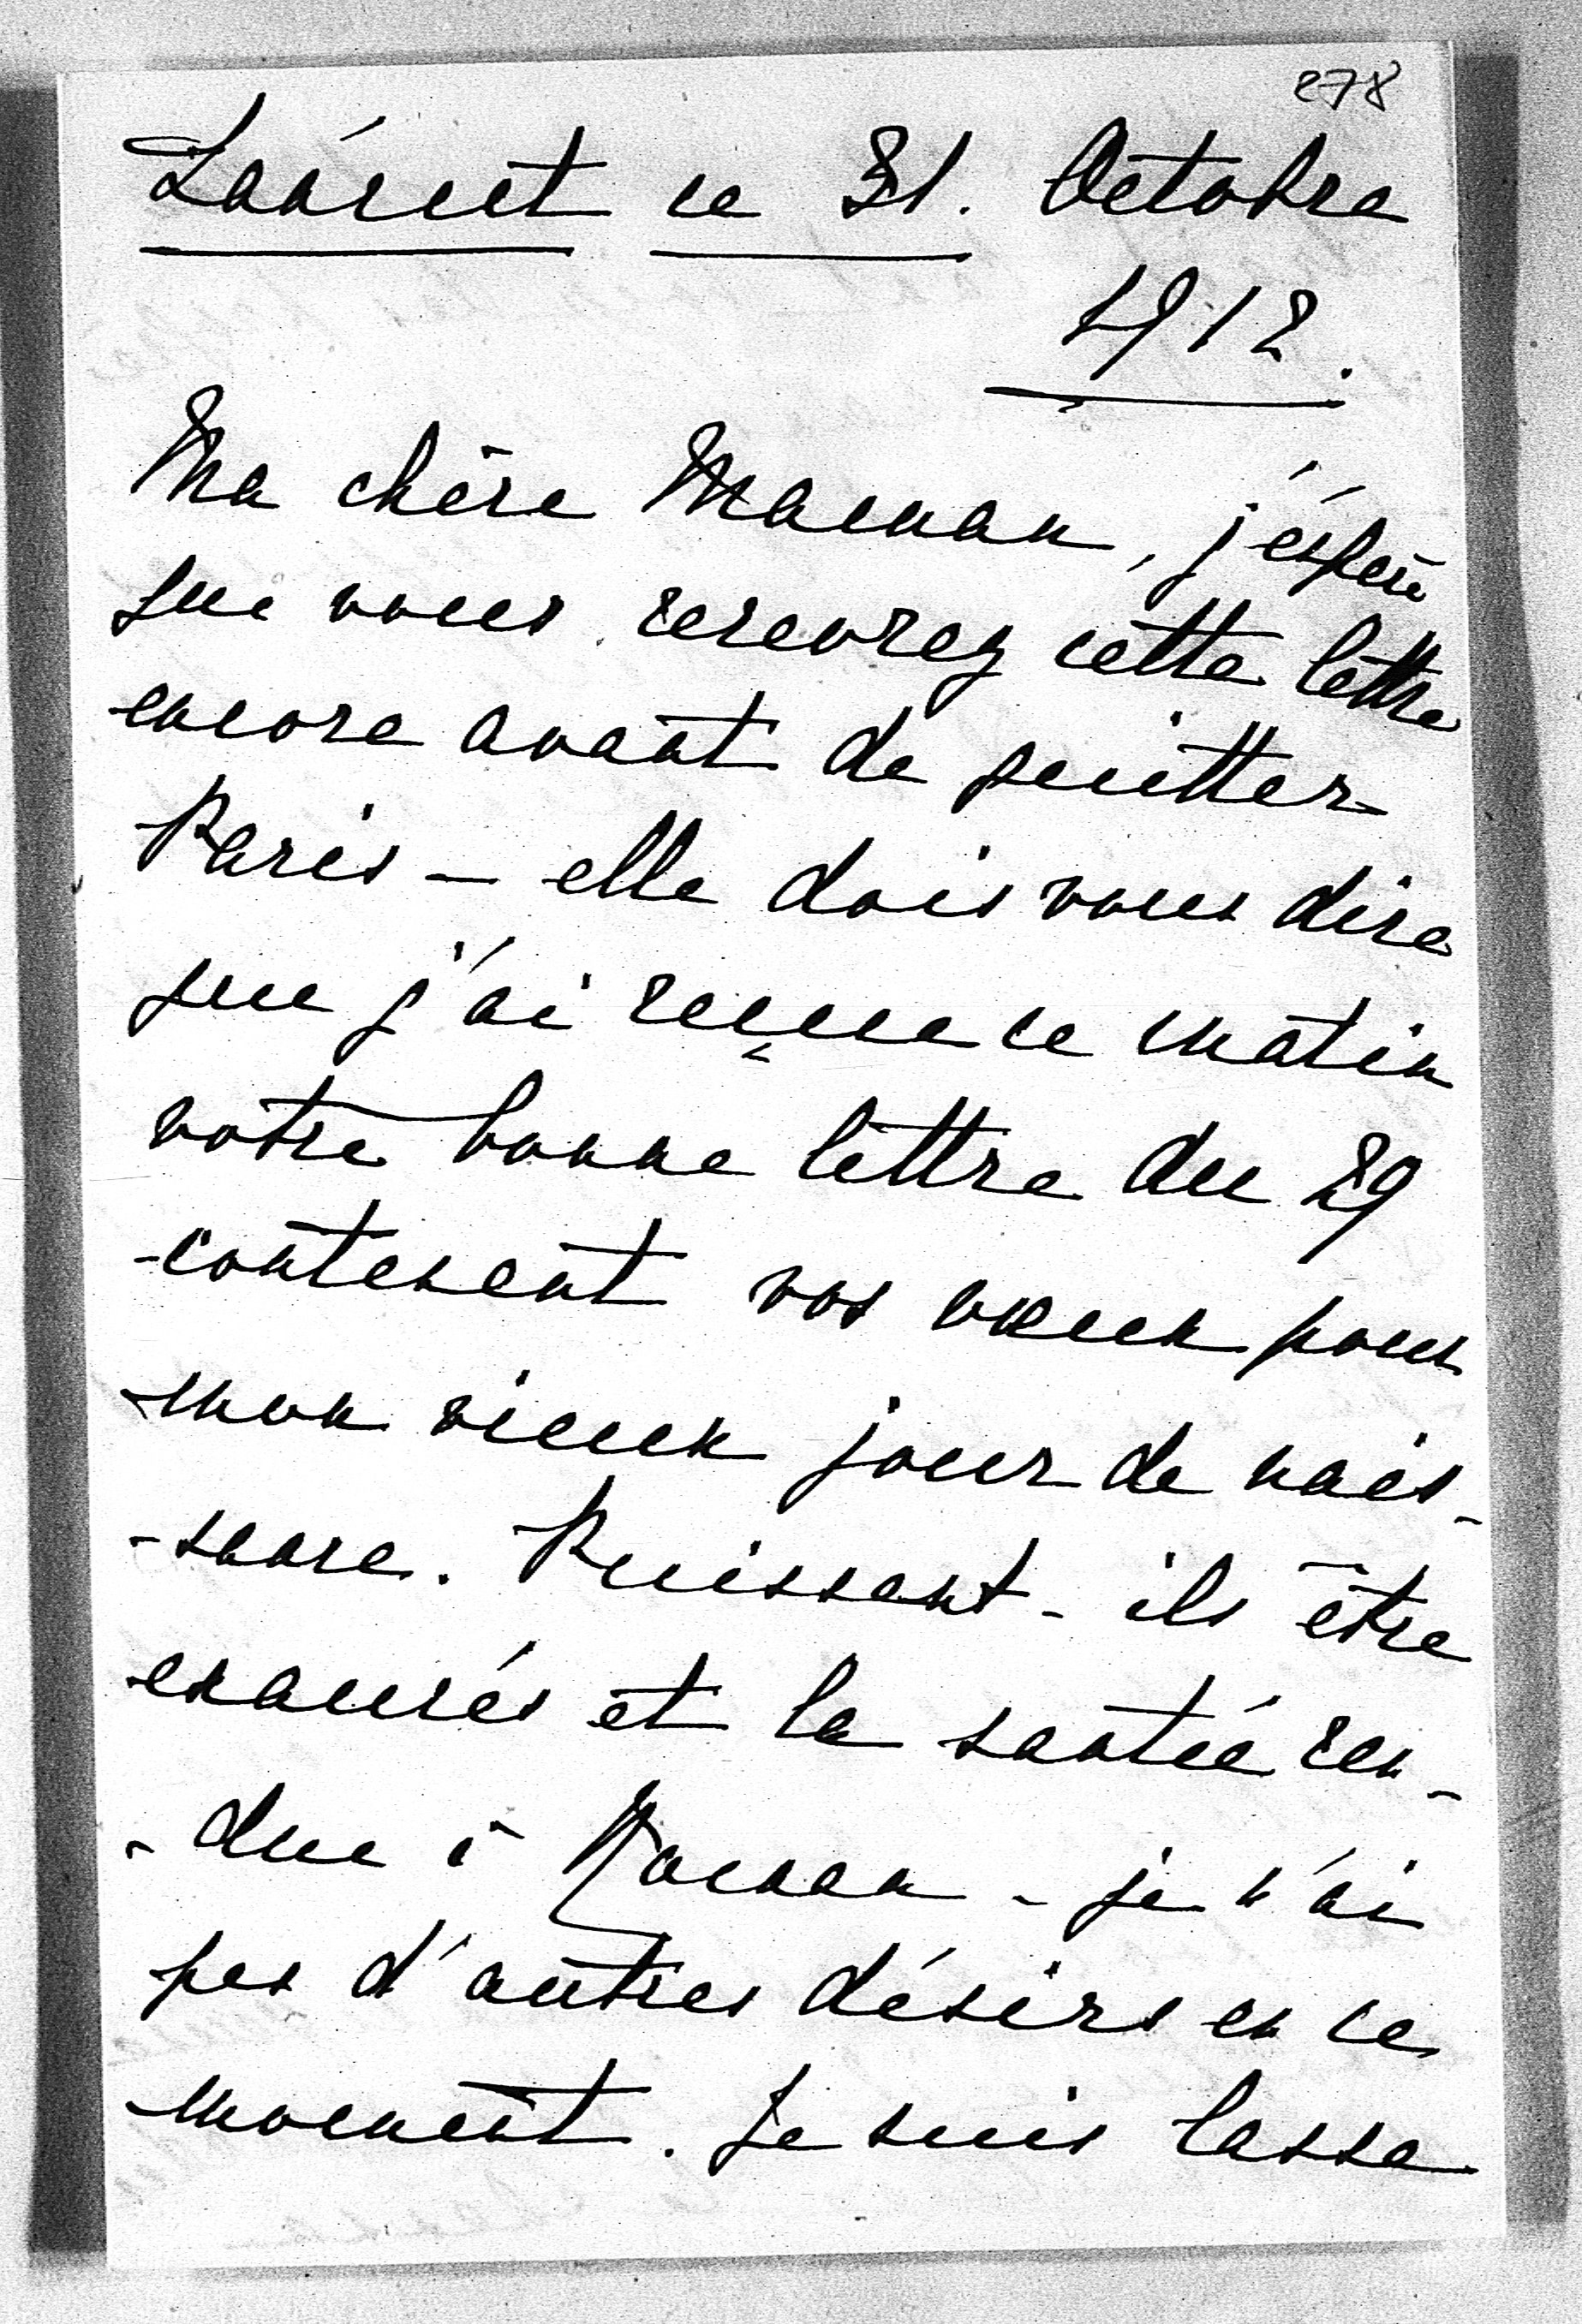 278
Loórect ce 31. Octobre
1912.
Ma chère Maman, j'éspère
que vous recevrez cette lettre
encore avant de quitter
Paris — elle dois vous dire
que j'ai reçue ce matin
votre bonne lettre du 29
contenent vos vœux pour
mon vieux jour de nais-
-sance. Puissent-ils être
exaucés et la santée ren-
-due à Maman - je n'ai
pas d'autres désirs en ce
moment. Je suis lasse